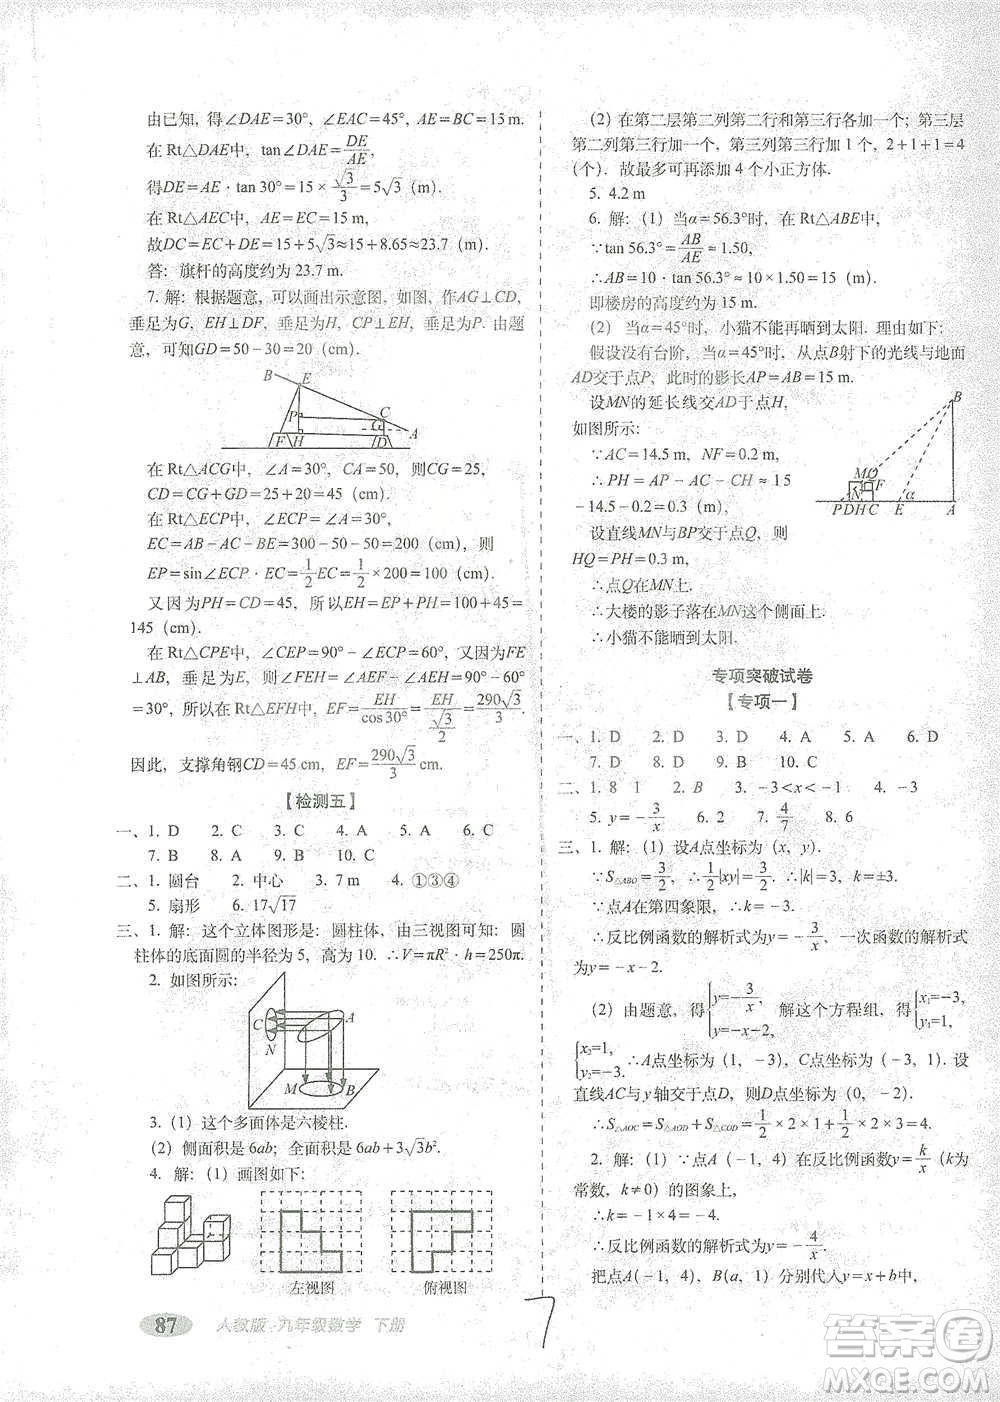 由已知，得∠DAE=30°，∠EAC=45°，AE=BC=15 m.
在 Rt△DAE中，tan∠DAE=DE/AE,
得DE=AE·tan 30°=15×√3/3=5√3 (m).
在 Rt△AEC中，EC=AE=15 m，
故DC=EC+DE=15+5√3≈15+8.65≈23.7(m).
答：旗杆的高度约为 23.7 m.
7. 解：根据题意，可以画出示意图，如图，作AG⊥CD，
垂足为G，EH⊥DF，垂足为H，CP⊥EH，垂足为P. 由题
意，可知GD=50-30=20 (cm).
B E P C G A F H D
在 Rt△ACG中，∠A=30°，CA=50，所以CG=25，
CD=CG+GD=25+20=45 (cm).
在 Rt△ECP中，∠ECP=∠A=30°，
EC=AB-AC-BE=300-50-50=200 (cm)，则
EP=sin∠ECP·EC=1/2EC=1/2×200=100 (cm).
又因为PH=CD=45，所以HE=EP+PH=100+45=
145 (cm).
在 Rt△CPE中，∠CEP=90°-∠ECP=60°. 因为FE
⊥AB，垂足为E，则∠HEF=∠AEF-∠CEP=90°-60°
=30°，所以在 Rt△EFH中，EF=EH/cos30°=EH/(√3/2)=290√3/3.
因此，支撑角钢CD=45 cm，EF=290√3/3 cm.
【检测五】
一、1. D 2. C 3. C 4. A 5. A 6. C
7. B 8. A 9. B 10. C
二、1. 圆台 2. 中心 3. 7 m 4. ①③④
5. 扇形 6. 17√17
三、1. 解：这个立体图形是：圆柱体，由三视图可知：圆
柱体的底面圆的半径为 5，高为 10. ∴V=πR²·h=250π.
2. 如图所示：
C N A M B
3. (1) 这个多面体是六棱柱.
(2) 侧面积是 6ab；全面积是 6ab+3√3b².
4. 解：(1) 画图如下：
左视图 俯视图
87 人教版·九年级数学 下册
(2) 在第二层第二列第二行和第三行各加一个；第三层
第二列第三行加一个，第三列第三行加 1 个，2+1+1=4
(个). 故最多可再添加 4 个小正方体.
5. 4.2 m
6. 解：(1) 当α=56.3°时，在 Rt△ABE中，
∵tan 56.3°=AB/AE≈1.50,
∴AB=10·tan 56.3°≈10×1.50=15 (m).
即楼房的高度约为 15 m.
(2) 当α=45°时，小猫不能再晒到太阳. 理由如下：
假设没有台阶，当α=45°时，从点B射下的光线与地面
AD交于点P，此时的影长AP=AB=15 m.
设MN的延长线交AD于点H，
如图所示：
∵AC=14.5 m，NF=0.2 m，
∴PH=AP-AC-CH≈15
-14.5-0.2=0.3 (m)，
设直线MN与BP交于点Q，则
HQ=PH=0.3 m，
∴点Q在MN上.
∴大楼的影子落在MN这个侧面上.
∴小猫不能晒到太阳.
B M Q F N α P D H C E A
专项突破试卷
【专项一】
一、1. D 2. D 3. D 4. A 5. A 6. D
7. D 8. D 9. B 10. C
二、1. 8 1 2. B 3. -3<x<-1 4. -3
5. y=-3/x 6. 2 7. 4/7 8. 6
三、1. 解：(1) 设A点坐标为 (x，y).
∵S△ABO=3/2，∴1/2|xy|=3/2，∴|k|=3，k=±3.
∵点A在第四象限，∴k=-3.
∴反比例函数的解析式为y=-3/x，一次函数的解析式
为y=-x-2.
(2) 由题意，得{y=-3/x, y=-x-2, 解这个方程组，得{x₁=-3, y₁=1,
{x₂=1, y₂=-3. ∴A点坐标为 (1，-3)，C点坐标为 (-3，1). 设
直线AC与 y 轴交于点D，则D点坐标为 (0，-2).
∴S△AOC=S△AOD+S△COD=1/2×2×1+1/2×2×3=4.
2. 解：(1) ∵点A (-1，4) 在反比例函数y=k/x (k为
常数，k≠0) 的图象上，
∴k=-1×4=-4.
∴反比例函数的解析式为y=-4/x.
把点A (-1，4)，B(a，1) 分别代入y=x+b中，
7
答案圈
MXQE.COM